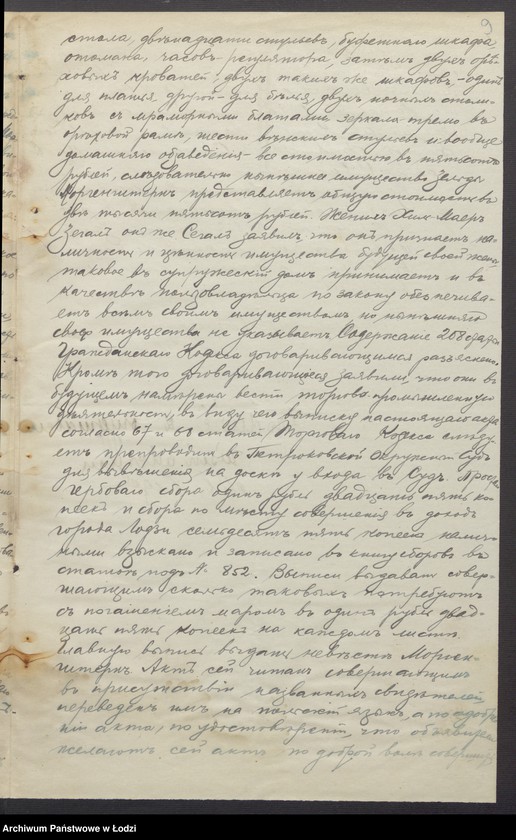 9
стола, двѣнадцати стульевъ, буфетнаго шкафа,
отомана, часовъ-регулятора, затѣмъ двухъ орѣ-
ховыхъ кроватей, двухъ такихъ же шкафовъ, -одинъ
для платья, другой-для бѣлья, двухъ ночныхъ столи-
ковъ съ мраморными блатами, зеркала тремо въ
орѣховой рамѣ, шести вѣнскихъ стульевъ и вообще
домашняго обзаведенія- все стоимостью въ пятьсотъ
рублей, слѣдовательно нынѣшнее имущество Зельды
Моргенштернъ представляетъ общую стоимость въ
двѣ тысячи пятьсотъ рублей. Женихъ Хилъ-Маеръ
Зегалъ онъ же Сегалъ заявилъ, что онъ признаетъ на-
личность и цѣнность имущества будущей своей жены
таковое въ супружескій домъ принимаетъ и въ
качествѣ пользовладѣльца по закону обезпечива-
етъ всѣмъ своимъ имуществомъ, но нынѣшняго
своего имущества не указываетъ. Содержаніе 208 статьи
Гражданскаго Кодекса договаривающимся разъяснено.
Кромѣ того договаривающіеся заявили, что они въ
будущемъ намѣрены вести торгово-промышленную
дѣятельность, въ виду чего выписка настоящаго акта
согласно 67 и 68 статей Торговаго Кодекса слѣду-
етъ препроводить въ Петроковскій Окружный Судъ
для вывѣшенія на доскѣ у входа въ Судъ.
Гербоваго сбора одинъ рубль двадцать пять ко-
пеекъ и сбора по мѣсту совершенія въ доходъ
города Лодзи семьдесятъ пять копеекъ налич-
ными взыскано и записано въ книгу сборовъ въ
статью подъ № 852. Выписи выдавать совер-
шающимъ сколько таковыхъ потребуютъ
съ погашеніемъ марокъ въ одинъ рубль двад-
цать пять копеекъ на каждомъ листѣ.
Главную выпись выдать невѣстѣ Морген-
штернъ. Актъ сей читанъ совершающимъ
въ присутствіи названныхъ свидѣтелей,
переведенъ имъ на польскій языкъ, а по одобре-
ніи акта, по удостовѣреніи, что
желаютъ сей актъ по доброй волѣ совершить
Archiwum Państwowe w Łodzi